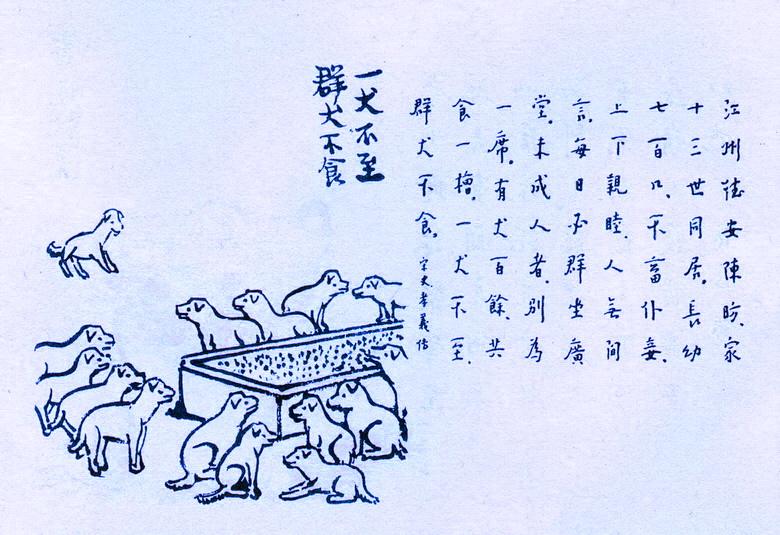 江州德安陳昉家
十三世同居。長幼
七百口、不畜仆妾、
上下親睦、人無間
言。每日必群坐廣
堂。未成人者、別為
一席。有犬百餘、共
食一槽。一犬不至、
群犬不食。宋史孝義傳
一犬不至
群犬不食